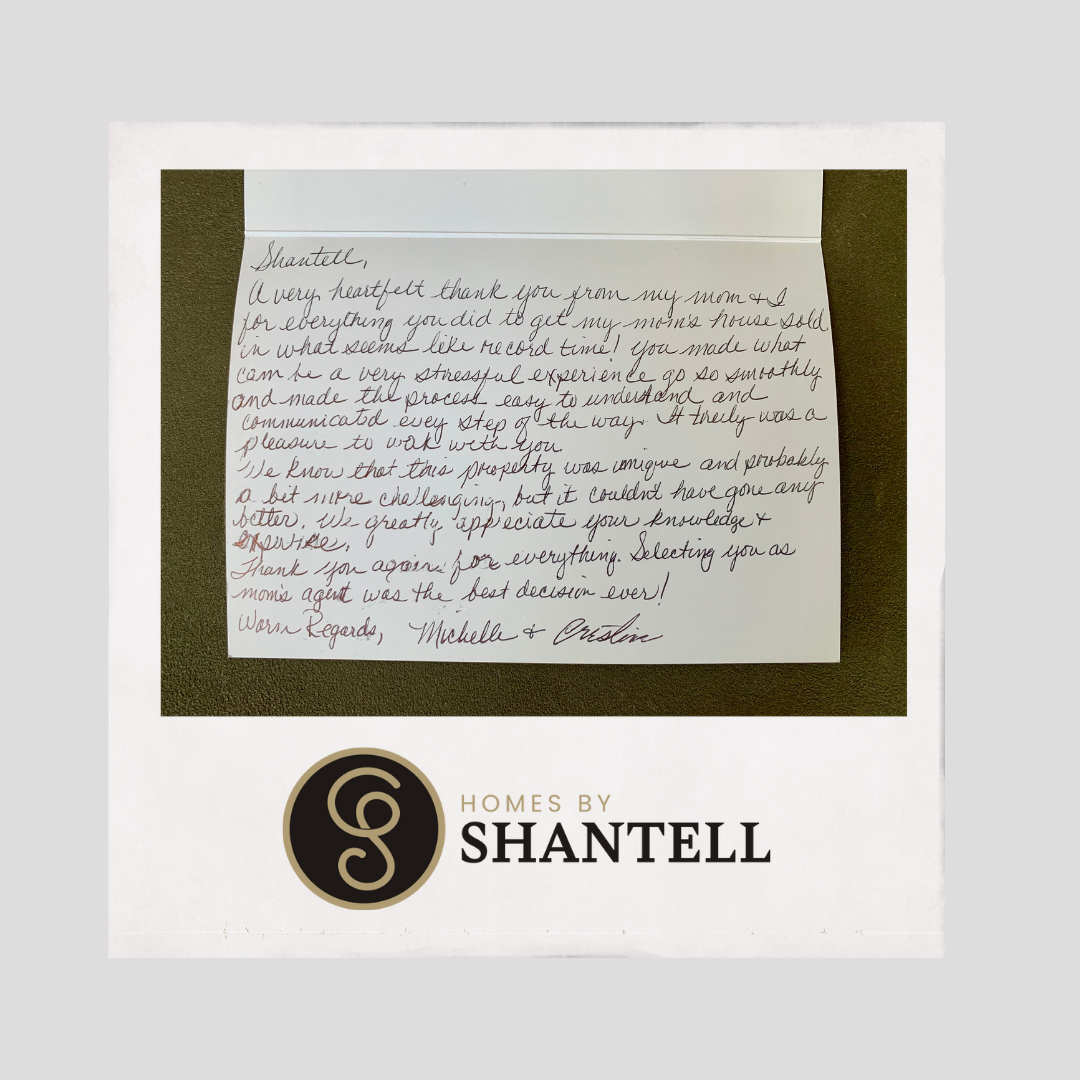 Shantell,
A very heartfelt thank you from my mom & I
for everything you did to get my mom's house sold
in what seems like record time! You made what
can be a very stressful experience go so smoothly
and made the process easy to understand and
communicated evey step of the way. It truely was a
pleasure to work with you
We know that this property was unique and probably
a bit more challenging, but it couldn't have gone any
better. We greatly appreciate your knowledge &
expertise.
Thank you again for everything. Selecting you as
mom's agent was the best decision ever!
Warm Regards, Michelle &
HOMES BY
SHANTELL